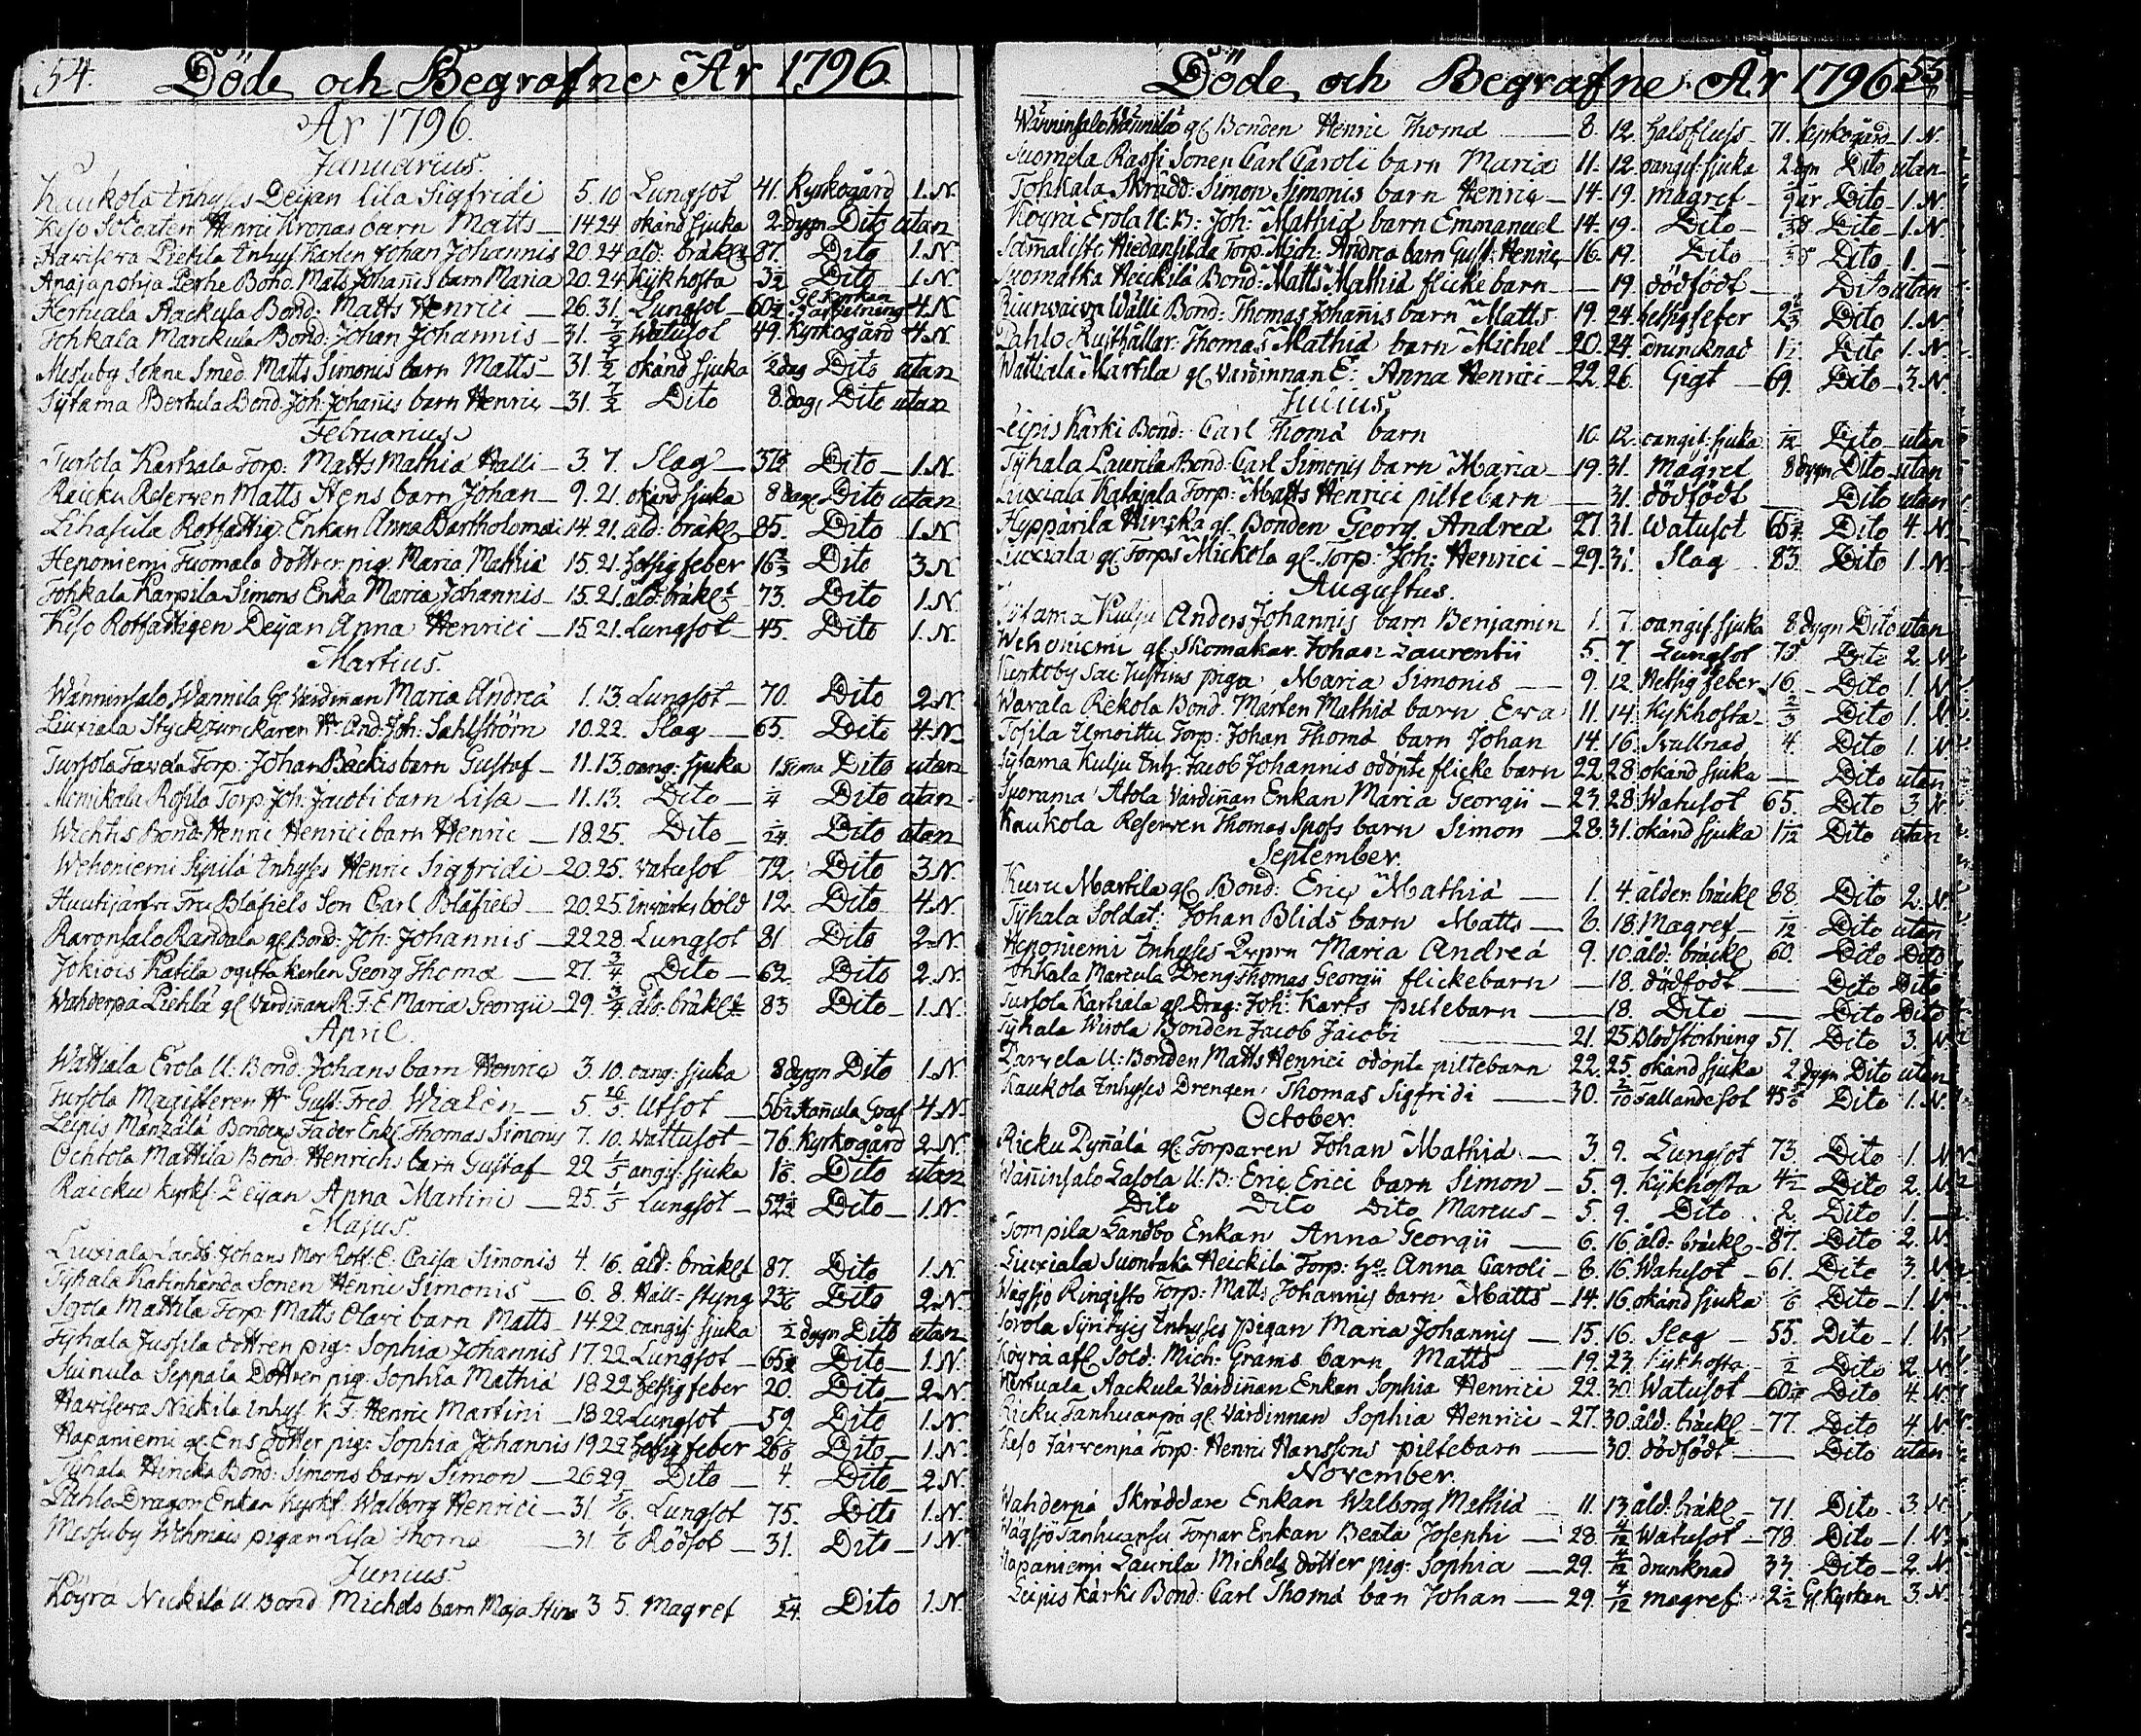 54. Döde och Begrafne År 1796.
År 1796.
Januarius.
Kaukola Inhyses Deijan Lisa Sigfridi 5. 10 Lungsot 41. Kyrkogård 1. N.
Keso Soldaten Henric Kronas barn Matts 14 24 okänd sjuka 2 dygn Dito utan
Havisera Pietilä Inhys Karlen Johan Johannis 20. 24 åld: bräkl 87. Dito 1. N.
Anajapohja Perhe Bond. Mats Johañis barn Maria 20. 24 Kykhosta 3½ Dito 1. N.
Hertuala Aackula Bond: Matts Henrici 26. 31. Lungsot 60 Gl. Kyrkan 4. N
Tohkala Marckula Bond: Johan Johannis 31. 7/2 Watusot 49. Kyrkogård 4. N.
Messuby Sohne Smed. Matts Simonis barn Matts 31. 7/2 okänd sjuka ½ dag Dito utan
Syrama Bertula Bond. Joh: Johañis barn Henric 31. 7/2 Dito 8. dag. Dito utan
Februarius
Tursola Karhala Torp: Matts Mathiä Halli 3. 7. Slag 37½ Dito 1. N.
Raicku Reserven Matts Stens barn Johan 9. 21. okänd sjuka 8 dage Dito utan
Lihasula Rotfattig. Enkan Anna Bartholomæi 14. 21. åld: bräkl 85. Dito 1. N
Heponiemi Tuomala dottren pig. Maria Mathiä 15. 21. hetsig feber 16⅔ Dito 3. N
Tohkala Karpila Simons Enka Maria Johannis 15. 21. åld: bräklt 73. Dito 1. N
Keso Rotfattigen Deijan Anna Henrici 15 21. Lungsot 45. Dito 1. N.
Martius.
Wänninsalo Wannila Gl. Värdiñan Maria Andreä 1. 13. Lungsot 70. Dito 2. N.
Liuxiala Styckjunckaren Hr And. Joh: Sahlström 10. 22. Slag 65. Dito 4. N.
Tursola Tavela Torp: Johan Bäckis barn Gustaf 11. 13. oang: sjuka 1 Dito utan
Monikala Rosila Torp. Joh: Jacobi barn Lisa 11. 13. Dito ¼ Dito utan
Wichtis Bond: Henric Henrici barn Henric 18. 25. Dito 1/24. Dito utan
Wehoniemi Sipilä Inhyses Henric Sigfridi 20. 25. Vatusot 72. Dito 3. N.
Huutijärfvi Fru Blåfields Son Carl Blåfield 20. 25. Invärtes bold 12. Dito 4. N.
Raronsalo Randala gl. Bond: Joh: Johannis 22 28. Lungsot 81 Dito 2. N.
Jokiois Katila ogifta karlen Georg Thomä 27. 3/4 Dito 62. Dito 2. N.
Wahderpä Piehlä gl Värdiñan R. F. E. Maria Georgii 29. 3/4. åld: bräklt 83 Dito 1. N.
April.
Wattiala Erola U. Bond. Johans barn Henric 3. 10. oang: sjuka 8 dygn Dito 1. N.
Tursola Magisteren Hr Gust. Fred. Walen 5. 16/5. Utsot 56½ Hañula Graf 4. N.
Leipis Manzala Bondens Fader Enkl Thomas Simonis 7. 10. Wattusot 76. Kyrkogård 2. N.
Ochtola Mattila Bond. Henrichs barn Gustaf 22 1/5 angif: sjuka Dito utan
Raicku Kyrkf. Deijan Anna Martini 25. 1/5 Lungsot 59½ Dito 1. N.
Majus.
Liuxiala Landb. Johans Mor Rotf: E. Caisa Simonis 4. 16. åld: bräklt 87. Dito 1. N.
Tyhala Katinhända Sonen Henric Simonis 6. 8. Håll: styng 23 Dito 2. N.
Sorola Mattila Torp. Matts Olavi barn Matts 14. 22. oangif. sjuka ½ dygn Dito utan
Tyhala Jussila dottren pig: Sophia Johannis 17. 22 Lungsot 65½ Dito 1. N.
Suinula Seppala Dottren pig: Sophia Mathiä 18 22 hetsig feber 20. Dito 2. N.
Havisera Nickilä Inhys K. F. Henric Martini 18 22 Lungsot 59. Dito 1. N.
Hapaniemi gl. Ens dotter pig: Sophia Johannis 19 22 hetsig feber 26 Dito 1. N.
Tyhala Hincka Bond: Simons barn Simon 26 29. Dito 4. Dito 2. N.
Pahlo Dragon Enkan Kyrkf. Walborg Henrici 31. 5/6. Lungsot 75. Dito 1. N.
Messuby Wehmais pigan Lisa Thomä 31. 5/6 Rödsot 31. Dito 1. N.
Junius.
Köyrä Nickilä U. Bond Michels barn Maja Stina 3 5. Magref 1/24. Dito 1. N.
Döde och Begrafne År 1796. 55
Wänninsalo Wannila gl. Bonden Henric Thomä 8. 12. halsfluss 71. Kyrkogård 1. N.
Suomela Rassi Sonen Carl Caroli barn Maria 11. 12. oangif. sjuka 2 dygn Dito utan
Tohkala Skrädd: Simon Simonis barn Henric 14. 19. Magref ½ år Dito 1. N.
Köyrä Erola U. B: Joh: Mathiä barn Emmanuel 14. 19. Dito Dito 1. N.
Hiedansilda Torp. Mich: Andreä barn Gust: Henric 16. 19. Dito Dito 1.
Suomatka Heickilä Bond: Matts Mathiä flicke barn 19. dödfödt Dito utan
Wälli Bond: Thomas Johañis barn Matts 19. 24. hetsig feber 2⅓ Dito 1. N
Pahlo Rusthållar: Thomas Mathiä barn Michel 20. 24. drunknad 1½ Dito 1. N.
Wattiala Martila gl. Värdinnan E: Anna Henrici 22. 26. Gigt 69. Dito 3. N.
Julius.
Leipis Kärki Bond: Carl Thomä barn 10. 12. oangif: sjuka 1/12 Dito utan
Tyhala Laurila Bond: Carl Simonis barn Maria 19. 31. Magref 8 dygn Dito utan
Liuxiala Katajala Torp: Matts Henrici piltebarn 31. dödfödt Dito utan
Hyppärila Hincka gl. Bonden Georg Andreä 27. 31. Watusot 65¼ Dito 4. N.
Liuxiala gl. Torp: Mickola gl. Torp: Joh: Henrici 29. 31. Slag 83. Dito 1. N.
Augustus.
Sytama Kulju Anders Johannis barn Benjamin 1. 7. oangif sjuka 8 dygn Dito utan
Wehoniemi gl. Skomakar. Johan Laurentii 5. 7. Lungsot 73. Dito 2. N.
Kyrkoby Sac Justinus piga Maria Simonis 9. 12. Hetsig feber 16. Dito 1. N.
Warala Rekola Bond. Mårten Mathiä barn Eva 11. 14. Kykhosta ⅔ Dito 1. N.
Tosila Torp: Johan Thomä barn Johan 14. 16. Svullnad 4. Dito 1. N.
Sytama Kulju Inh: Jacob Johannis odöpte flicke barn 22. 28. okänd sjuka Dito utan
Atola Värdiñan Enkan Maria Georgii 23. 28. Watusot 65. Dito 3. N.
Kaukola Reserven Thomas Spofs barn Simon 28. 31. okänd sjuka 1 1/12 Dito utan
September.
Kuru Martila gl. Bond: Eric Mathiä 1. 4. ålder. bräckl 88. Dito 2. N.
Tyhala Soldat: Johan Blids barn Matts 6. 18. Magref 1/12 Dito utan
Heponiemi Inhyses Maria Andreä 9. 10. åld: bräckl 60. Dito Dito
Tohkala Marcula Dreng Thomas Georgii flickebarn 18. dödfödt Dito Dito
Tursola Karhala gl. Drag: Joh: Karts piltebarn 18. Dito Dito Dito
Tyhala Wirola Bonden Jacob Jacobi 21. 25. Blodstörtning 51. Dito 3. N.
Tarvela U: Bonden Matts Henrici odöpte piltebarn 22. 25. okänd sjuka 2 dygn Dito utan
Kaukola Inhyses Drengen Thomas Sigfridi 30. 2/10 Fallandesot 45½ Dito 1. N.
October.
Ricku Pyñälä gl: Torparen Johan Mathiä 3. 9. Lungsot 73 Dito 1. N.
Wäñinsalo Lasola U: B: Eric Erici barn Simon 5. 9. Kykhosta 4½ Dito 2. N.
Dito Dito Dito Marcus 5. 9. Dito 2. Dito 1.
Sompila Landbo Enkan Anna Georgii 6. 16. åld: bräckl 87. Dito 2. N.
Liuxiala Suontaka Heickilä Torp: Anna Caroli 8. 16. Watusot 61. Dito 3. N.
Wägsjö Ringisto Torp: Matts Johannis barn Matts 14. 16. okänd sjuka 1/6 Dito 1. N.
Sorola Inhyses pigan Maria Johannis 15. 16. Slag 55. Dito 1. N.
Köyrä afl. Sold. Mich: Grams barn Matts 19. 23. Kykhosta ½ Dito 2. N.
Hertuala Aackula Värdiñan Enkan Sophia Henrici 22. 30. Watusot 60 Dito 4. N.
Ricku Tanhuanpä gl. Värdinnan Sophia Henrici 27. 30. åld: bräckl 77. Dito 4. N.
Keso Järvenpä Torp: Henric Hanssons piltebarn 30. dödfödt Dito utan
November.
Wahderpä Skräddare Enkan Walborg Mathiä 11. 13. åld: bräkl 71. Dito 3. N.
Wägsjö Torpar Enkan Beata Josephi 28. 4/12 Watusot 78. Dito 1. N.
Hapaniemi Laurila Michels dotter pig: Sophia 29. 4/12 drunknad 33. Dito 2. N.
Leipis Kärki Bond: Carl Thomä ban Johan 29. 4/12 magref 2½ Gl. Kyrkan 3. N.